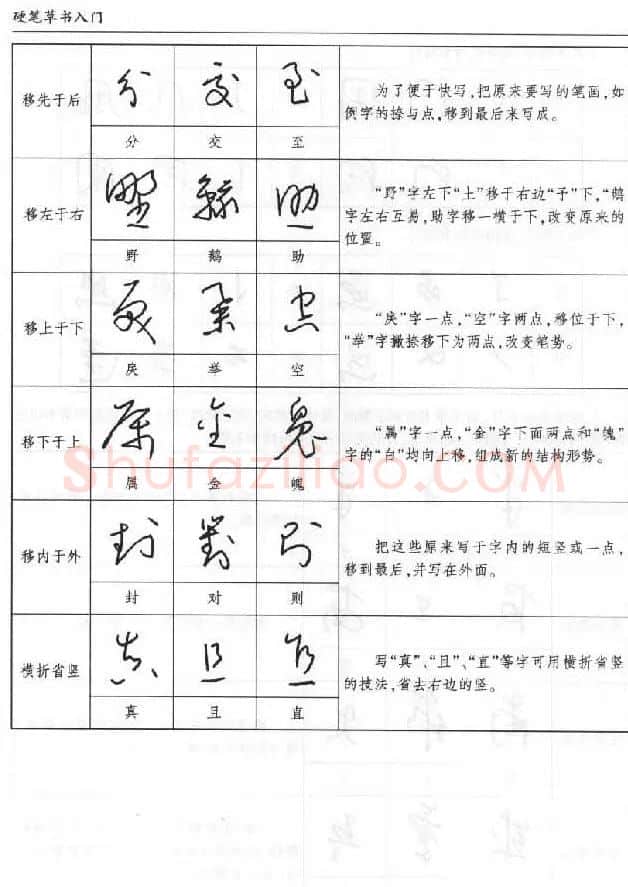 硬笔草书入门
移先于后
分 交 至
为了便于快写，把原来要写的笔画，如
例字的捺与点，移到最后来写成。
移左于右
野 鹅 助
“野”字左下“土”移于右边“予”下，“鹅
字左右互易，助字移一横于下，改变原来的
位置。
移上于下
戾 举 空
“戾”字一点，“空”字两点，移位于下，
“举”字撇捺移下为两点，改变笔势。
移下于上
属 金 魄
“属”字一点，“金”字下面两点和“魄”
字的“白”均向上移，组成新的结构形势。
Shufaziliao.com
移内于外
封 对 则
把这些原来写于字内的短竖或一点，
移到最后，并写在外面。
横折省竖
真 且 直
写“真”、“且”、“直”等字可用横折省竖
的技法，省去右边的竖。